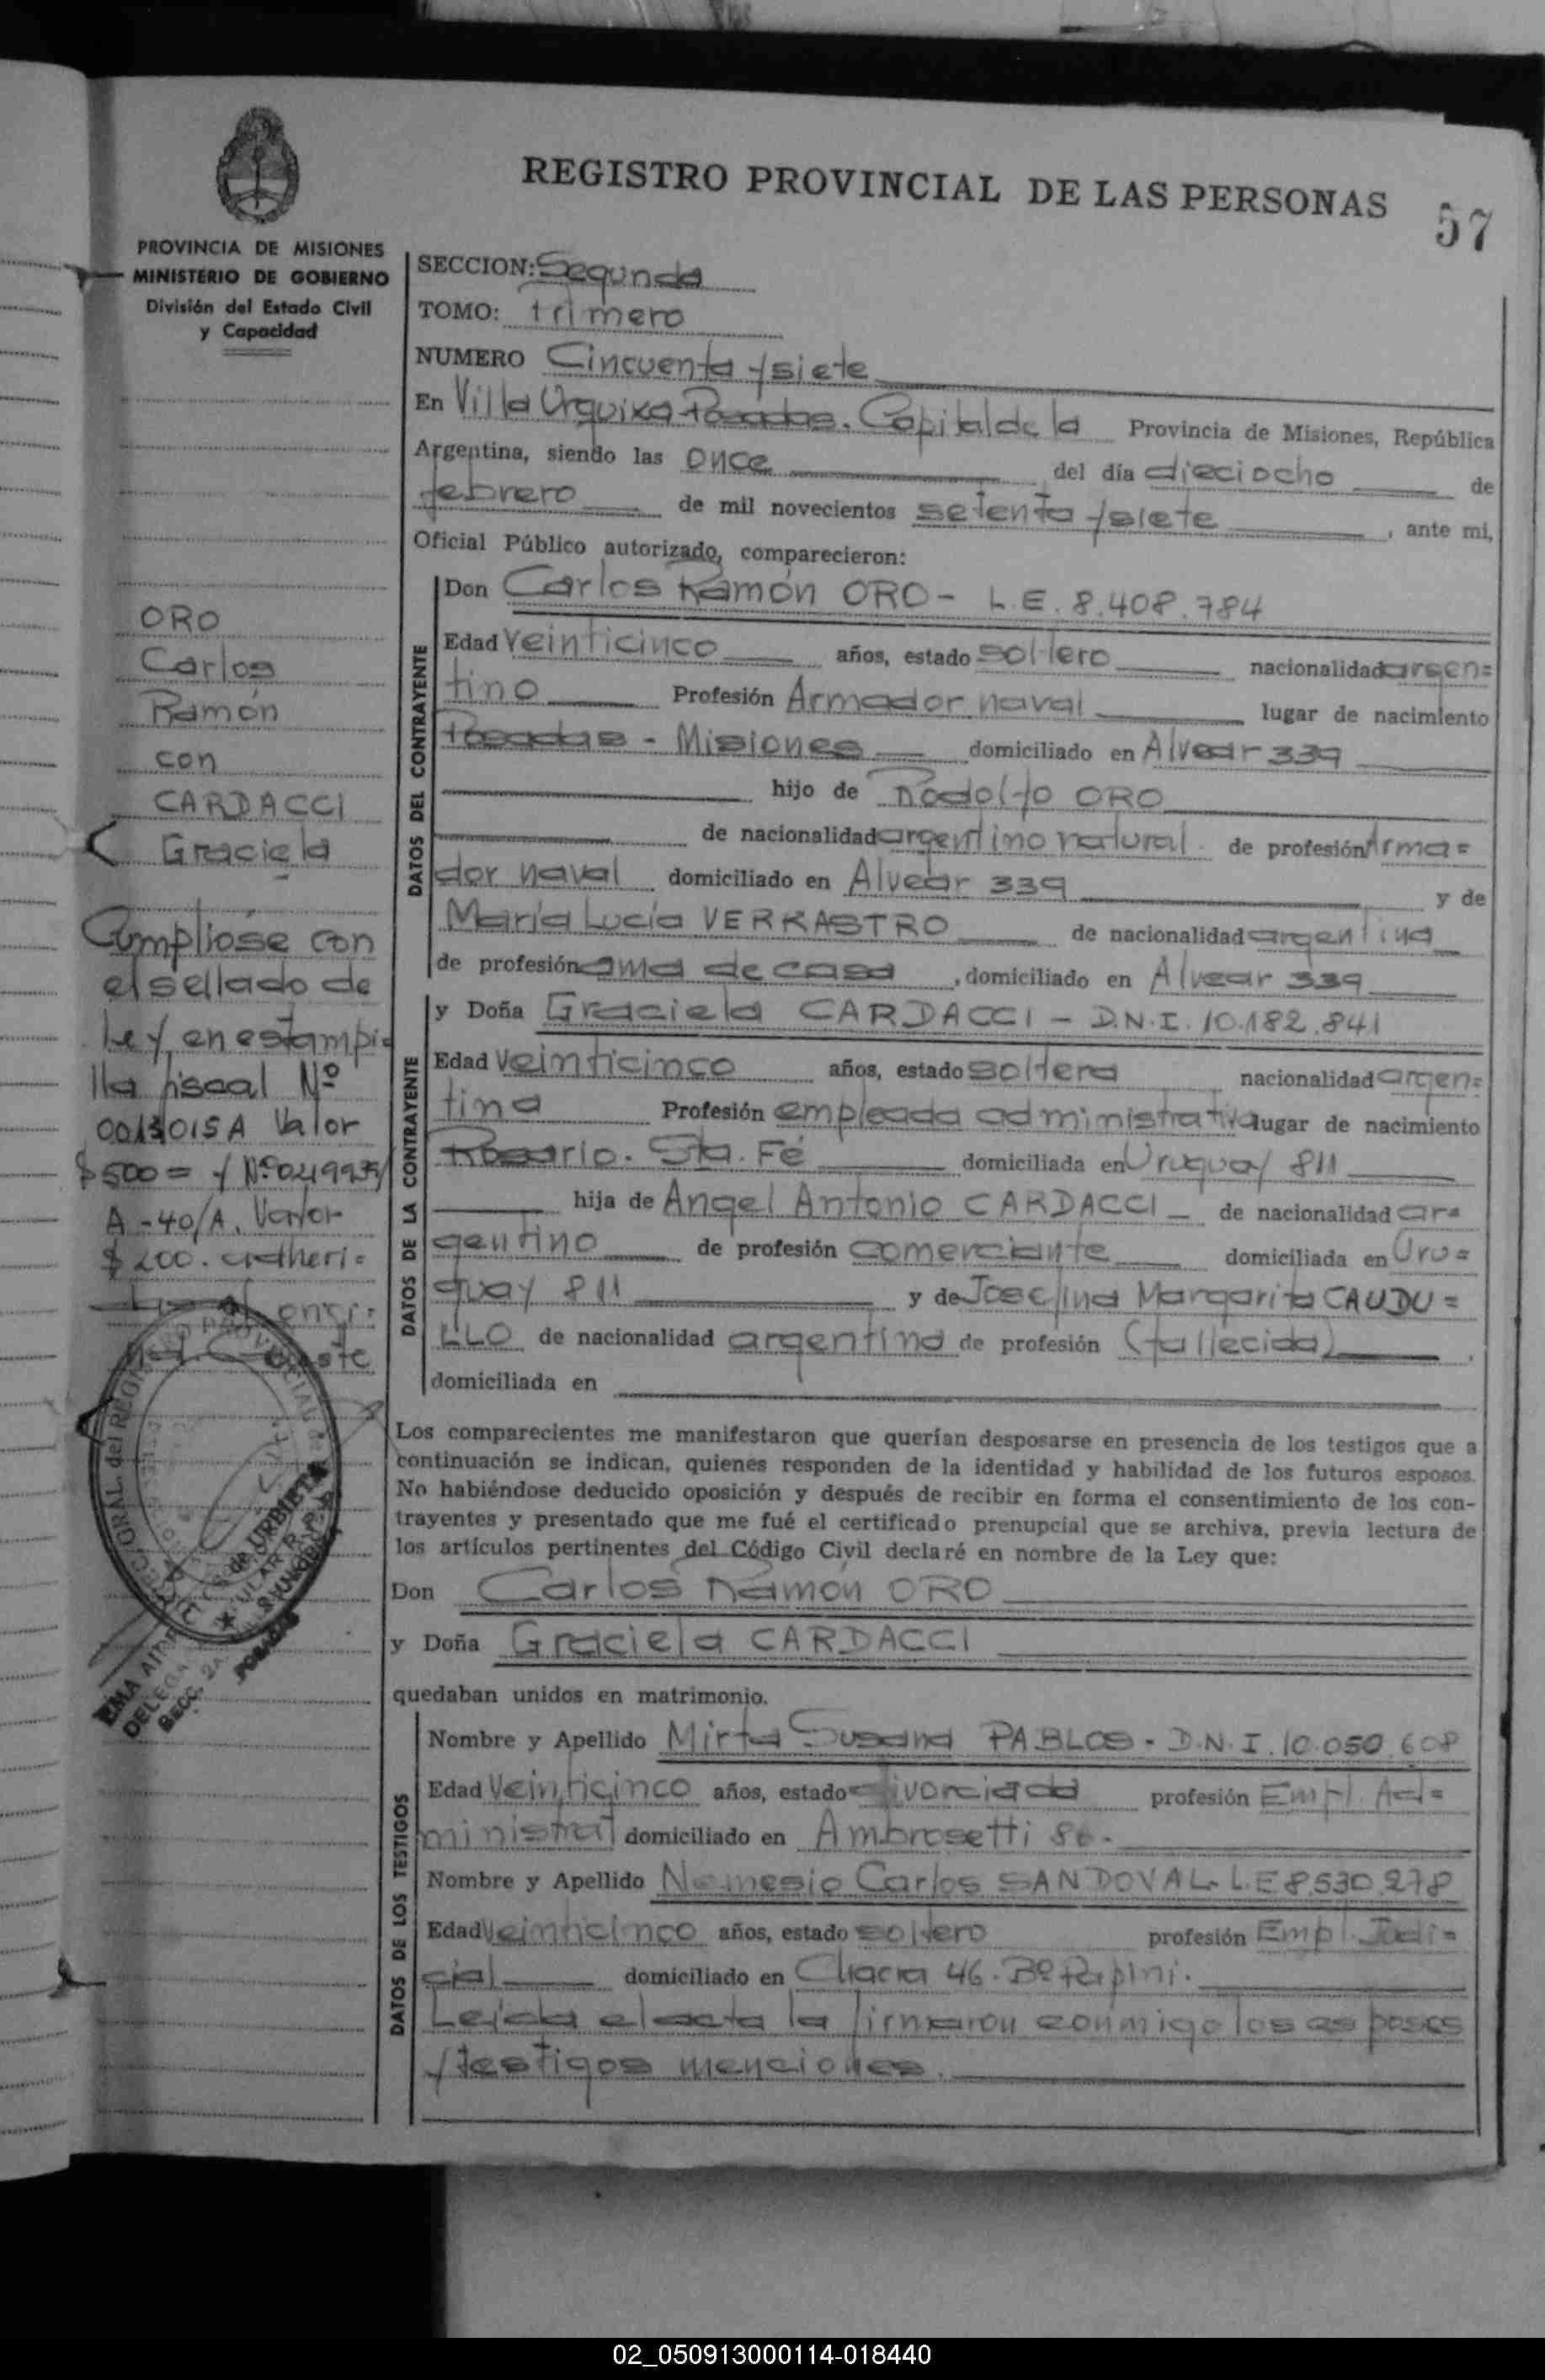 REGISTRO PROVINCIAL DE LAS PERSONAS 57
PROVINCIA DE MISIONES
MINISTERIO DE GOBIERNO
División del Estado Civil
y Capacidad
ORO
Carlos
Ramón
con
CARDACCI
Graciela
Cumpliose con
el sellado de
Ley, en estampi=
lla fiscal Nº
A Valor
$500= y Nº
A-40/A. Valor
$200. adheri=
SECCION: Segunda
TOMO: primero
NUMERO Cincuenta y siete
En Villa Urquiza Posadas. Capital de la Provincia de Misiones, República
Argentina, siendo las once del día dieciocho de
febrero de mil novecientos setenta y siete, ante mi,
Oficial Público autorizado, comparecieron:
DATOS DEL CONTRAYENTE
Don Carlos Ramón ORO- L.E. 8.408.784
Edad veinticinco años, estado soltero nacionalidad argen=
tino Profesión Armador naval lugar de nacimiento
Posadas - Misiones domiciliado en Alvear 339
hijo de Rodolfo ORO
de nacionalidad argentino natural. de profesión Arma=
dor naval domiciliado en Alvear 339 y de
María Lucía VERKASTRO de nacionalidad argentina
de profesión ama de casa, domiciliado en Alvear 339
DATOS DE LA CONTRAYENTE
y Doña Graciela CARDACCI - D.N.I. 10.182.841
Edad veinticinco años, estado soltera nacionalidad argen=
tina Profesión empleada administrativa lugar de nacimiento
Rosario. Sta. Fé domiciliada en Uruguay 811
hija de Angel Antonio CARDACCI de nacionalidad ar=
gentino de profesión comerciante domiciliada en Uru=
guay 811 y de Josefina Margarita CAUDU=
LLO de nacionalidad argentina de profesión (fallecida).
domiciliada en
Los comparecientes me manifestaron que querían desposarse en presencia de los testigos que a
continuación se indican, quienes responden de la identidad y habilidad de los futuros esposos.
No habiéndose deducido oposición y después de recibir en forma el consentimiento de los con-
trayentes y presentado que me fué el certificado prenupcial que se archiva, previa lectura de
los artículos pertinentes del Código Civil declaré en nombre de la Ley que:
Don Carlos Ramón ORO
y Doña Graciela CARDACCI
quedaban unidos en matrimonio.
DATOS DE LOS TESTIGOS
Nombre y Apellido Mirta Susana PABLOS - D.N.I. 10.050.608
Edad veinticinco años, estado divorciada profesión Empl. Ad=
ministrat domiciliado en Ambrosetti 86.
Nombre y Apellido Nemesio Carlos SANDOVAL. L.E 8.530.278
Edad veinticinco años, estado soltero profesión Empl. Judi=
cial domiciliado en Chacra 46. Bº Papini.
Leída el acta la firmaron conmigo los esposos
y testigos menciones.
02_050913000114-018440